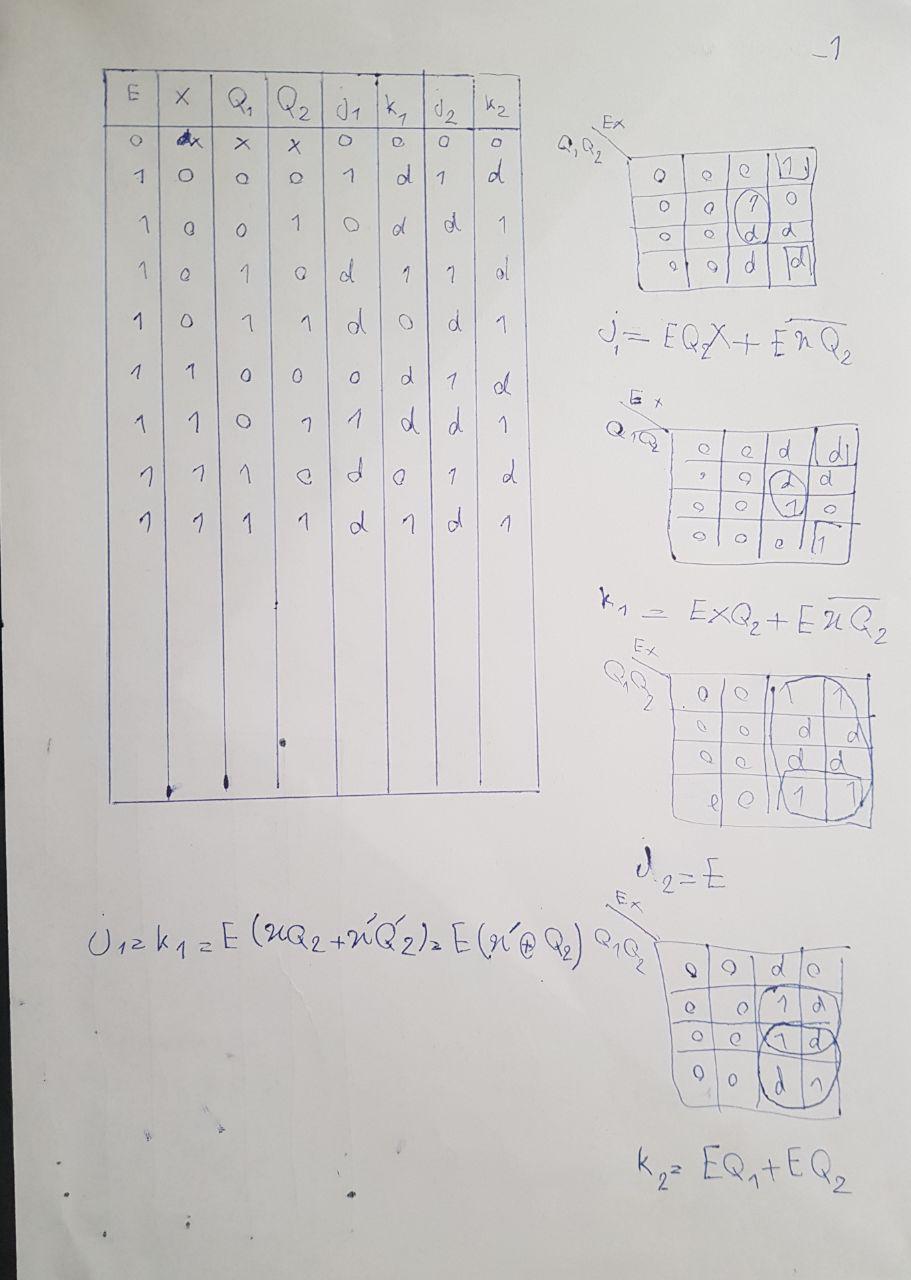 -1
E X Q₁ Q₂ j₁ k₁ j₂ k₂
0 x x x 0 0 0 0
1 0 0 0 1 d 1 d
1 0 0 1 0 d d 1
1 0 1 0 d 1 1 d
1 0 1 1 d 0 d 1
1 1 0 0 0 d 1 d
1 1 0 1 1 d d 1
1 1 1 0 d 0 1 d
1 1 1 1 d 1 d 1
Ex
Q₁Q₂
0 0 0 1
0 0 1 0
0 0 d d
0 0 d d
j₁ = EQ₂X + E x̅Q̅₂
Ex
Q₁Q₂
0 0 d d
0 0 d d
0 0 1 0
0 0 0 1
k₁ = ExQ₂ + E x̅Q̅₂
Ex
Q₁Q₂
0 0 1 1
0 0 d d
0 0 d d
0 0 1 1
J₂ = E
J₁ = k₁ = E (xQ₂ + x'Q'₂) = E (x' ⊕ Q₂)
Ex
Q₁Q₂
0 0 d 0
0 0 1 d
0 0 1 d
0 0 d 1
k₂ = EQ₁ + EQ₂